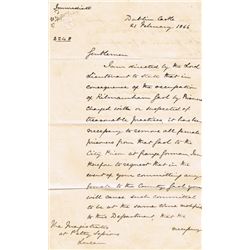 Immediate
Dublin Castle
21 February 1866
2248
Gentlemen
I am directed by the Lord
Lieutenant to state that in
consequence of the occupation
of Kilmainham Gaol by Persons
charged with or suspected of
treasonable practices it has been
necessary to remove all female
prisoners from that Gaol to the
City Prison at Grangegorman. I am
therefore to request that in the
event of your committing any
female to the County Gaol you
will cause such committal
to be at the same time notified
to this Department, that the
necessary
The Magistrates
at Petty Sessions
Lucan